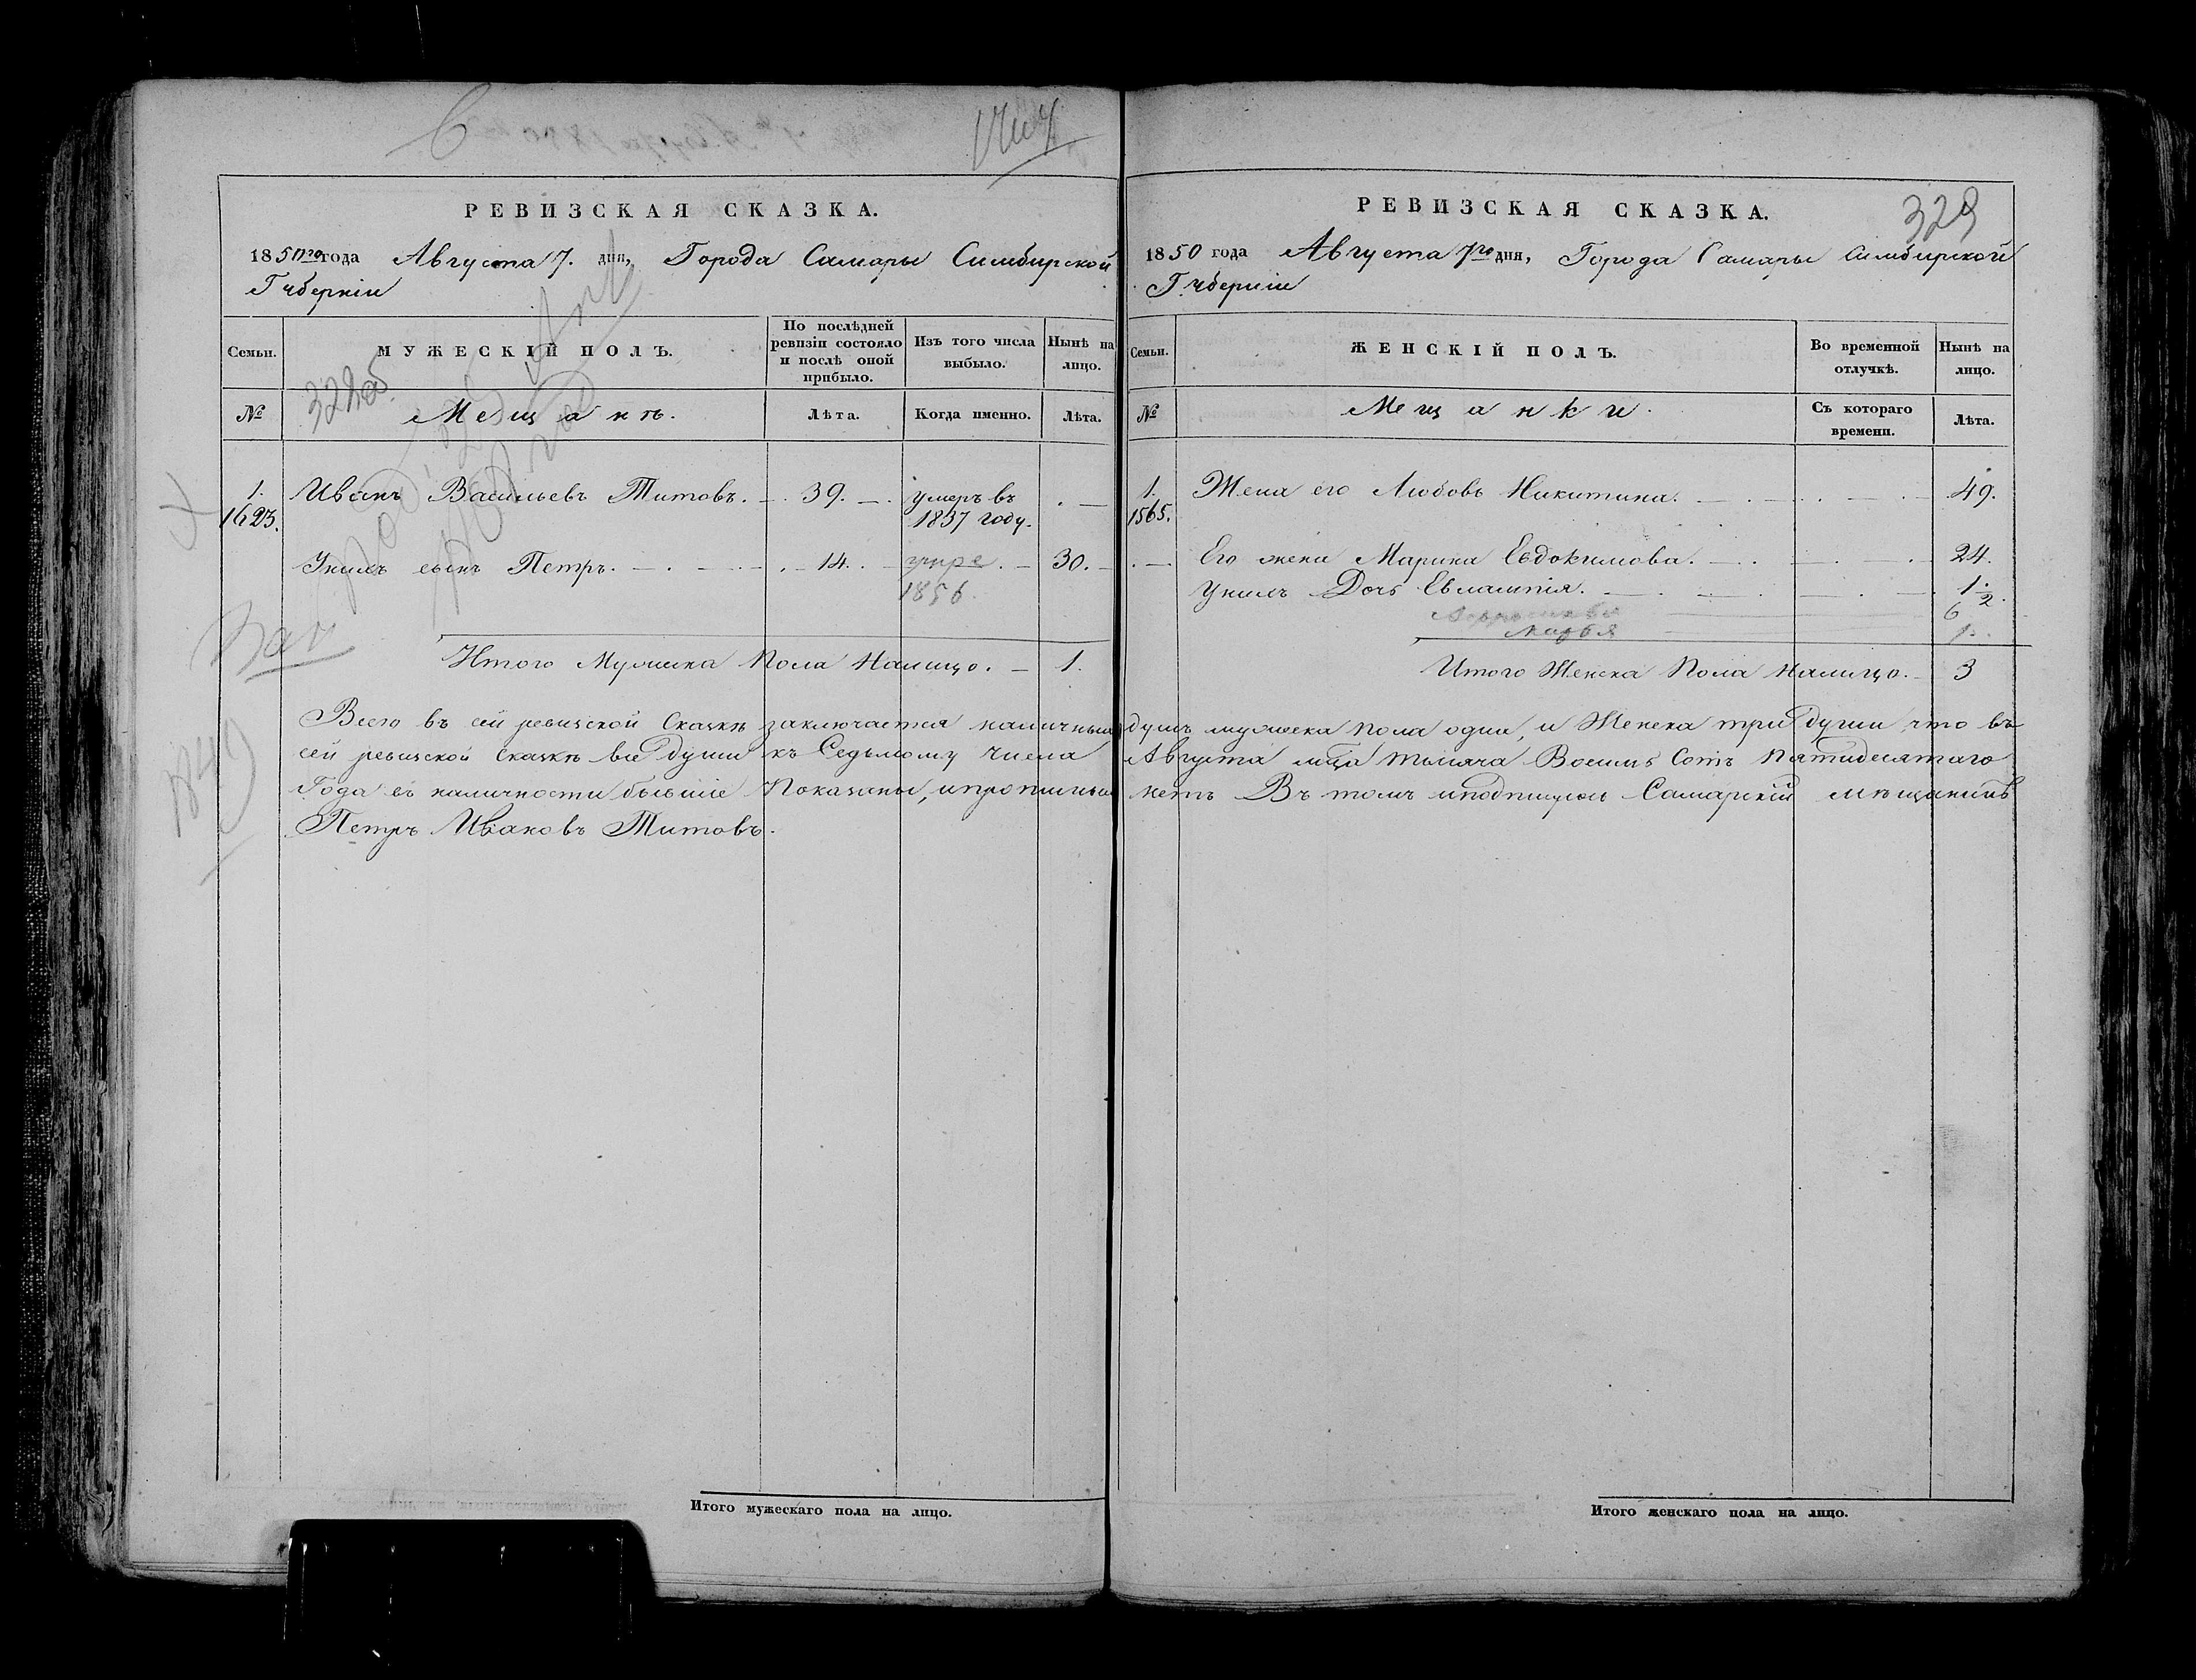 РЕВИЗСКАЯ СКАЗКА.
1850го года Августа 7. дня, Города Самары Симбирской
Губерніи
Семьи.
МУЖЕСКІЙ ПОЛЪ.
По послѣдней ревизіи состояло и послѣ оной прибыло.
Изъ того числа выбыло.
Нынѣ на лицо.
№
Мещанъ.
Лѣта.
Когда именно.
Лѣта.
1.
1623.
Иванъ Васильевъ Титовъ. 39. умеръ въ
1837 году.
У него сынъ Петръ. 14. 30.
1856.
Итого Мужеска Пола Налицо. 1.
РЕВИЗСКАЯ СКАЗКА.
329
1850 года Августа 7го дня, Города Самары Симбирской
Губерніи
Семьи.
ЖЕНСКІЙ ПОЛЪ.
Во временной отлучкѣ.
Нынѣ на лицо.
№
Мещанки.
Съ котораго времени.
Лѣта.
1.
1565.
Жена его Любовь Никитина. 49.
Его жена Марина Евдокимова. 24.
У нихъ Дочь Евлампія. 1/2.
6
Марья 1.
Итого Женска Пола Налицо. 3
Всего въ сей ревизской Сказкѣ заключается наличныхъ душъ мужеска пола одна, и Женска три души, что въ
сей ревизской сказкѣ все души къ Седьмому числа Августа мца тысяча Восемь Сотъ пятидесятаго
Года въ наличности бывшіе Показаны, и прописныхъ нетъ Въ томъ и подпишуюсь Самарскій мѣщанинъ
Петръ Ивановъ Титовъ.
Итого мужескаго пола на лицо.
Итого женскаго пола на лицо.